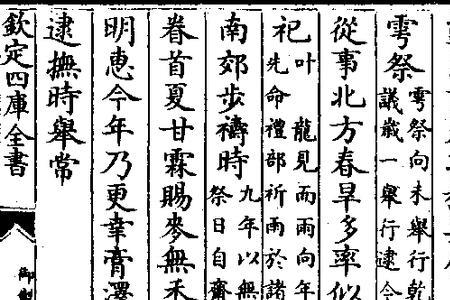 雩祭雩祭向未舉行乾
議歲一舉行逮今
從事北方春旱多率似
祀叶龍見而雨向年
先命禮部祈雨於諸
南郊步禱時九年以無
祭日自齋
眷首夏甘霖賜麥無禾
明惠今年乃更幸膏澤
逮撫時舉常
欽定四庫全書
御